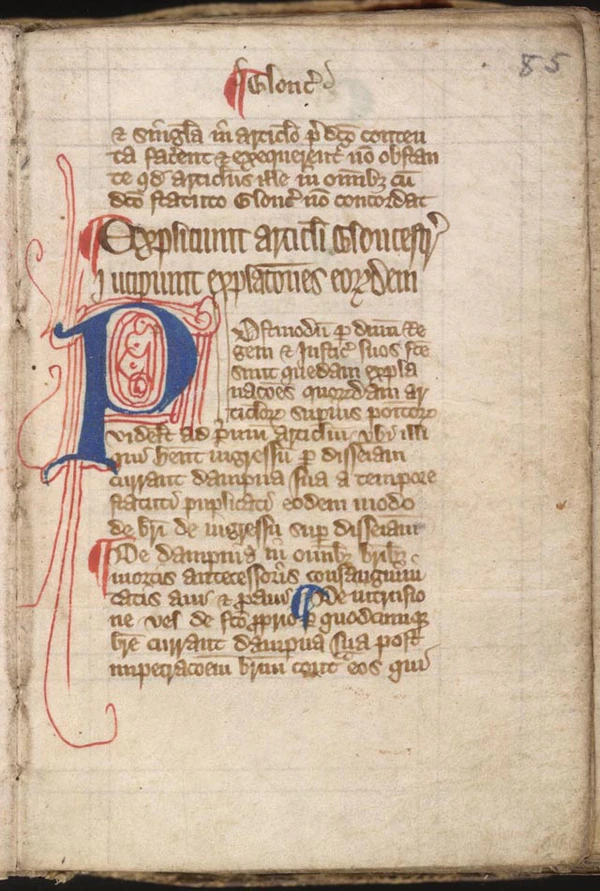 85
¶ Gloucꝰ
& singla in articlo p̱ dc̄o conten
ta facent & exequerent̉ nō obstan
te qd̓ articlus ille in om̄ibꝫ cū
dc̄o statuto Glouc̉ nō concordat
¶ Expliciunt articli Gloucestr̉
Incipiunt expplac̄ones eorꝝdem
Postmodū p̱ dnm̄ Re
gem & Justic̉ suos fc̄e
sunt quedam expla
nac̄oes quorꝝdam ar
ticlorꝝ supius positorꝝ
videlt̉ ad p̓mum articlm̄ vbi illi
qui hent ingressū p̱ disseiam̄
currant dampna sua a tempore
statuti puplicati eodem modo
de br̄i de ingressu sup̱ disseiam̄
¶ De dampnis in om̄ibꝫ brībꝫ
mortis antecessoris consanguini
tatis aui & p̱aui ¶ De intrusio
ne vel de fc̄o p̱prio p̱ quodcumqꝫ
br̄e currant dampna sua post
impetrac̄oem br̄ium cont̉ eos qui